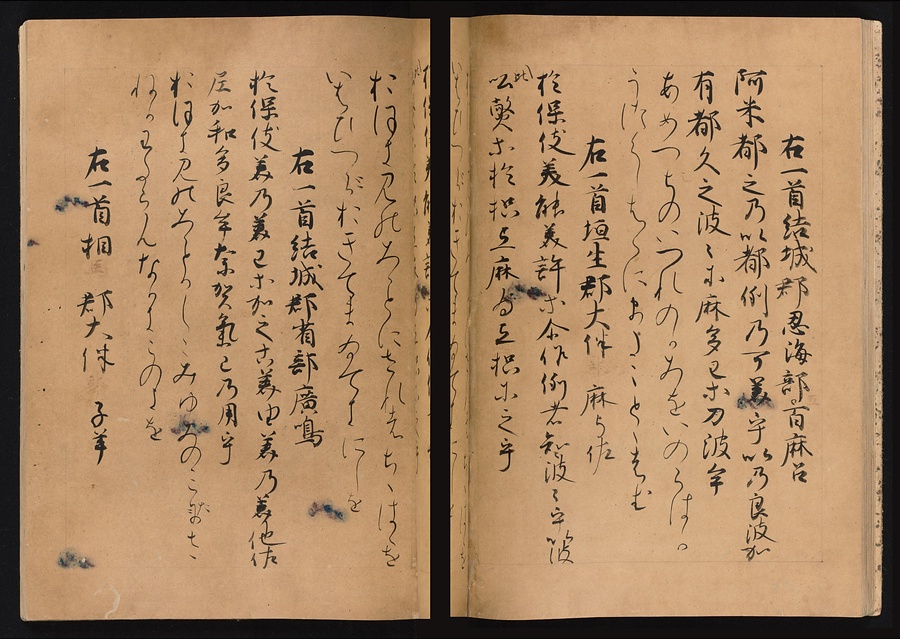 右一首結城郡忍海部百麻呂
阿米都之乃以都例乃可美乎以乃良波加
有都久之波々尓麻多己等刀波牟
あめつちのいつれのかみをいのらはか
うつくしはゝにまたことゝはむ
右一首埴生郡大伴 麻与佐
於保伎美能美許等尓作例者知波々乎以波
比弊等於枳弖麻為弖枳尓之乎
おほきみのみことにされはちゝはゝを
いはひへとおきてまゐてきにしを
右一首結城郡雀部廣嶋
於保伎美乃美己等加之古美由美乃美他佐
尼加和多良牟奈賀氣己乃用乎
おほきみのみことかしこみゆみのみたさ
ねかわたらんなかけこのよを
右一首相 郡大伴 子羊